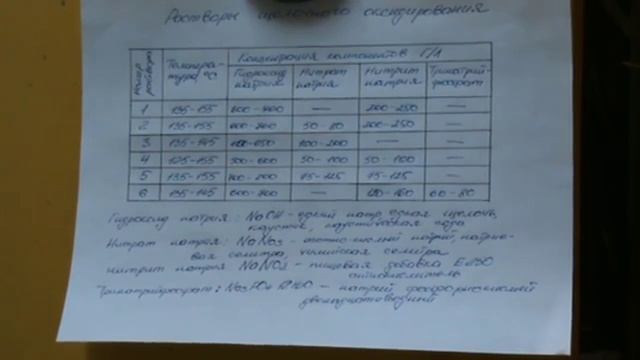 Растворы щелочного оксидирования
Номер раствора Температура, °С Концентрация компонентов Г/Л
Гидроксид натрия Нитрат натрия Нитрит натрия Тринатрийфосфат
1 135-155 — 200-250 —
2 135-155 50-80 200-250 —
3 135-145 100-200 — —
4 125-155 500-600 50-100 50-100 —
5 135-155 75-125 75-125 —
6 135-145 — 60-80
Гидроксид натрия: NaOH - едкий натр, едкая щелочь,
каустик, каустическая сода
Нитрат натрия: NaNO3 - азотно-кислый натрий, натрие-
вая селитра, чилийская селитра
нитрит натрия - пищевая добавка Е250
антиокислитель
Тринатрийфосфат: Na3PO4 12H2O - натрий фосфорнокислый
двенадцативодный